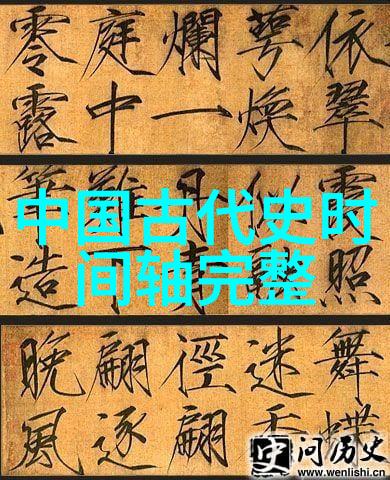 依翠
萼煥
爛一
庭中
零露
照
似
難
造
舞蝶
迷香
徑翩
翩逐
晚風
中国古代史时
间轴完整
问历史
www.wenlishi.cn